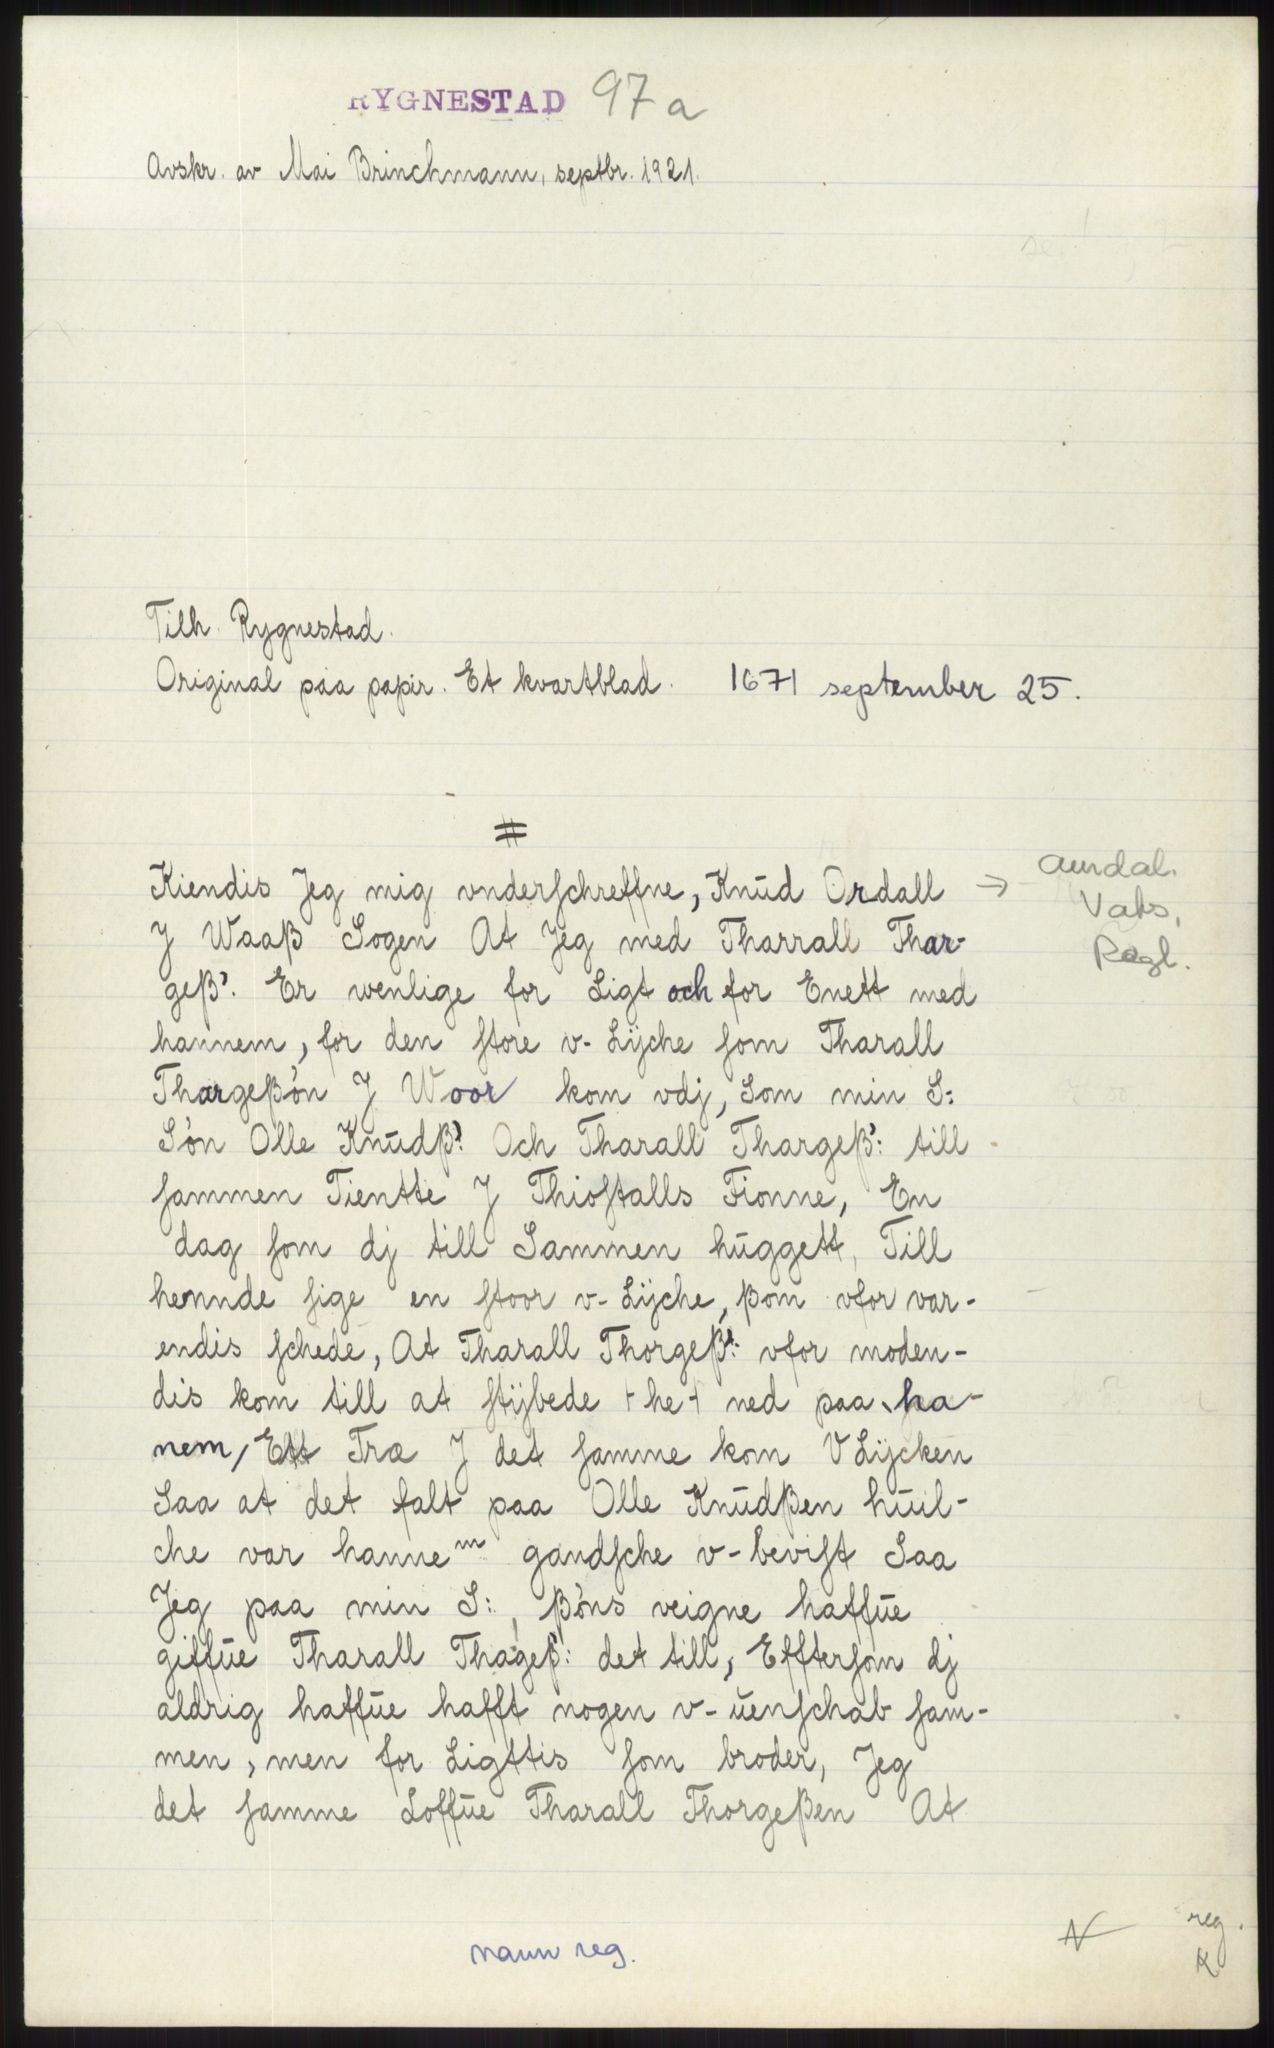 RYGNESTAD 97a
Avskr. av Mai Brinchmann, septbr. 1921.
Tilh. Rygnestad.
Original paa papir. Et kvartblad. 1671 september 25.
#
Kiendis Jeg mig vnderſchreffne, Knŭd Ordall → Aurdal.
J Waaß Sogen At Jeg med Tharrall Thar- Vats,
geß'. Er wenlige for Ligt och for Enett med Rogl.
hannem, for den ſtore v-Lÿche ſom Tharall
Thargeßøn J Woor kom vdj, Som min S:
Søn Olle Knŭdß': Och Tharall Thargeß': till
ſammen Tientte J Thioſtalls Fionne, En
dag ſom dj till Sammen hŭggett, Till
hennde ſige en ſtoor v-Lÿche, ßom vfor var-
endis ſchede, At Tharall Thorgeß': vfor moden-
dis kom till at ſtÿbede ⊢he⊣ ned paa ha-
nem, Ett Træ J det ſamme kom VLÿcken
Saa at det falt paa Olle Knŭdßen hŭil-
che var hannem gandſche v-beviſt Saa
Jeg paa min S:, ßøns veigne haffŭe
giffŭe Tharall Thageß': det till, Effterſom dj
aldrig haffŭe hafft nogen v-ŭenſchab ſam-
men, men for Ligttis ſom broder, Jeg
det ſamme Loffŭe Tharall Thorgeßen At
navn reg.
N
reg.
K